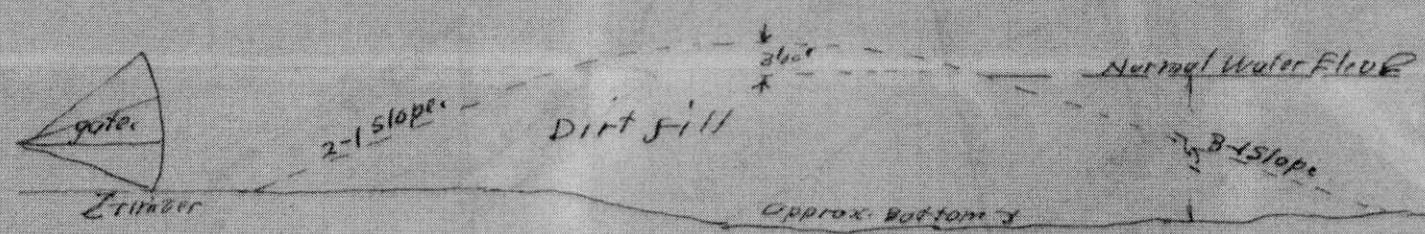 gate.
2-1 Slope.
Dirt fill
Normal Water Elev.
3-1 Slope
Approx. Bottom